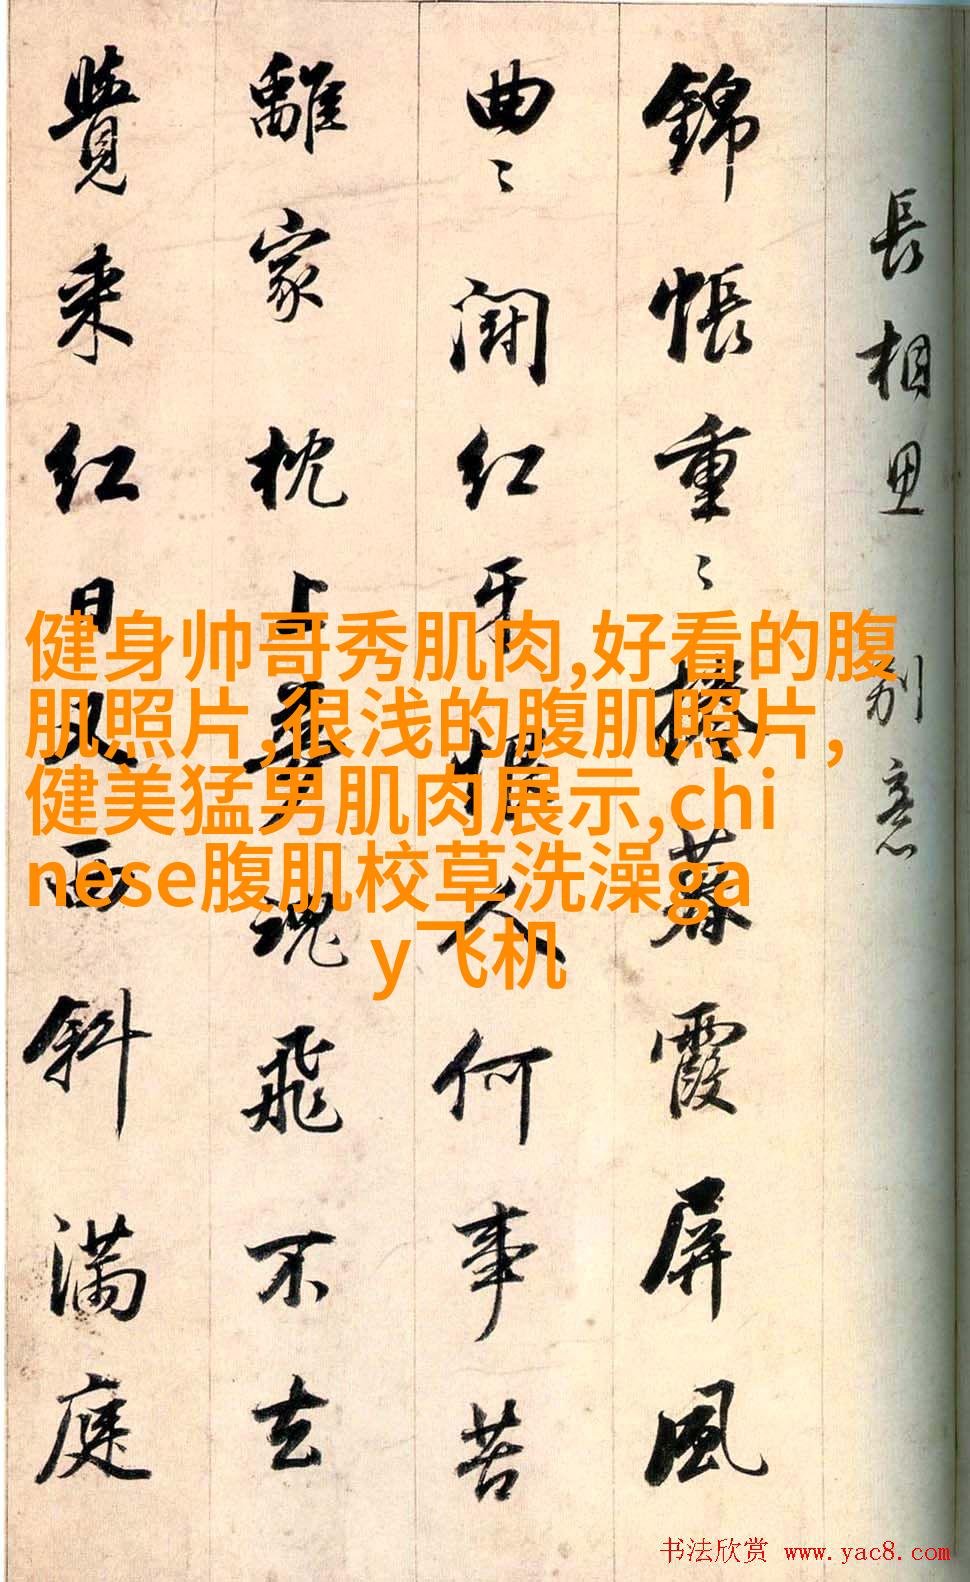 長相思 别意
錦帳重〻捲暮霞屏風
曲〻鬭红牙恨人何事苦
離家枕上夢魂飛不去
覺来红日又西斜满庭
健身帅哥秀肌肉,好看的腹
肌照片,很浅的腹肌照片,
健美猛男肌肉展示,chi
nese腹肌校草洗澡ga
y飞机
书法欣赏 www.yac8.com